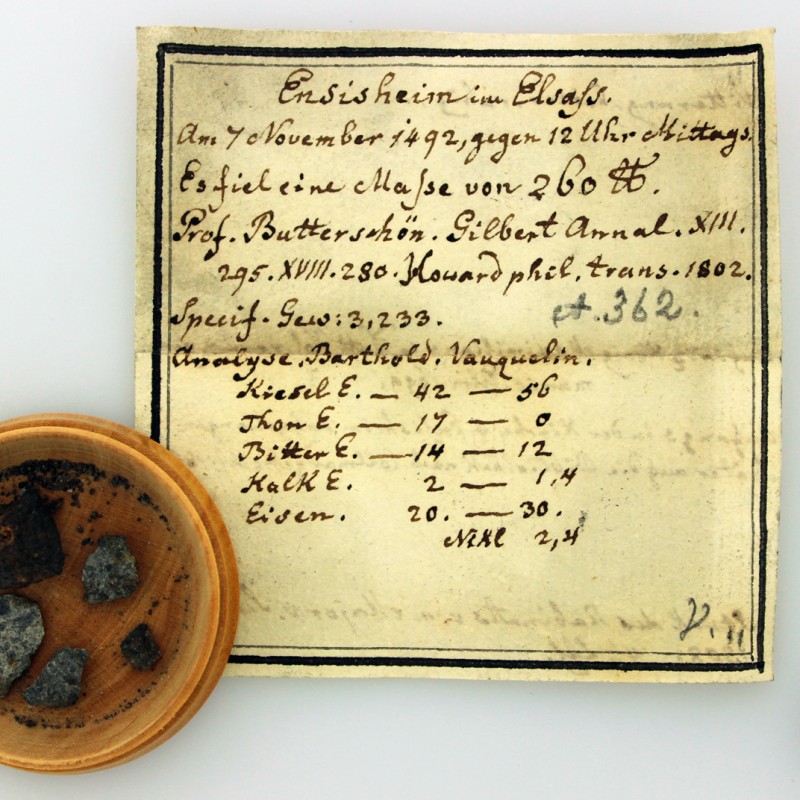 Ensisheim im Elsass.
Am 7 November 1492, gegen 12 Uhr Mittags.
Es fiel eine Masse von 260 ℔.
Prof. Butterschön. Gilbert Annal. XIII.
295. XVIII. 280. Howard phil. trans. 1802.
Specif. Gew: 3,233.
A. 362.
Analyse. Barthold. Vauquelin.
Kiesel E. — 42 — 56
Thon E. — 17 — 0
Bitter E. — 14 — 12
Kalk E. 2 — 1,4
Eisen. 20. — 30.
Nikl 2,4
V. 11